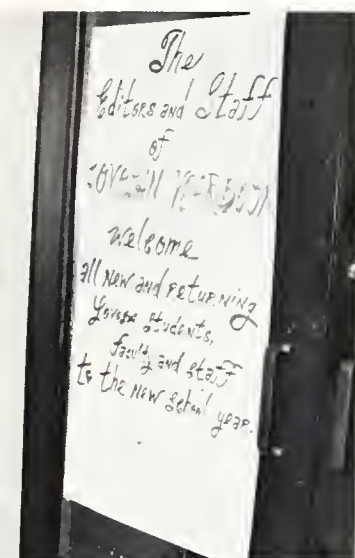 The
Editors and Staff
of
welcome
all new and returning
students,
faculty and staff
to the new school year.